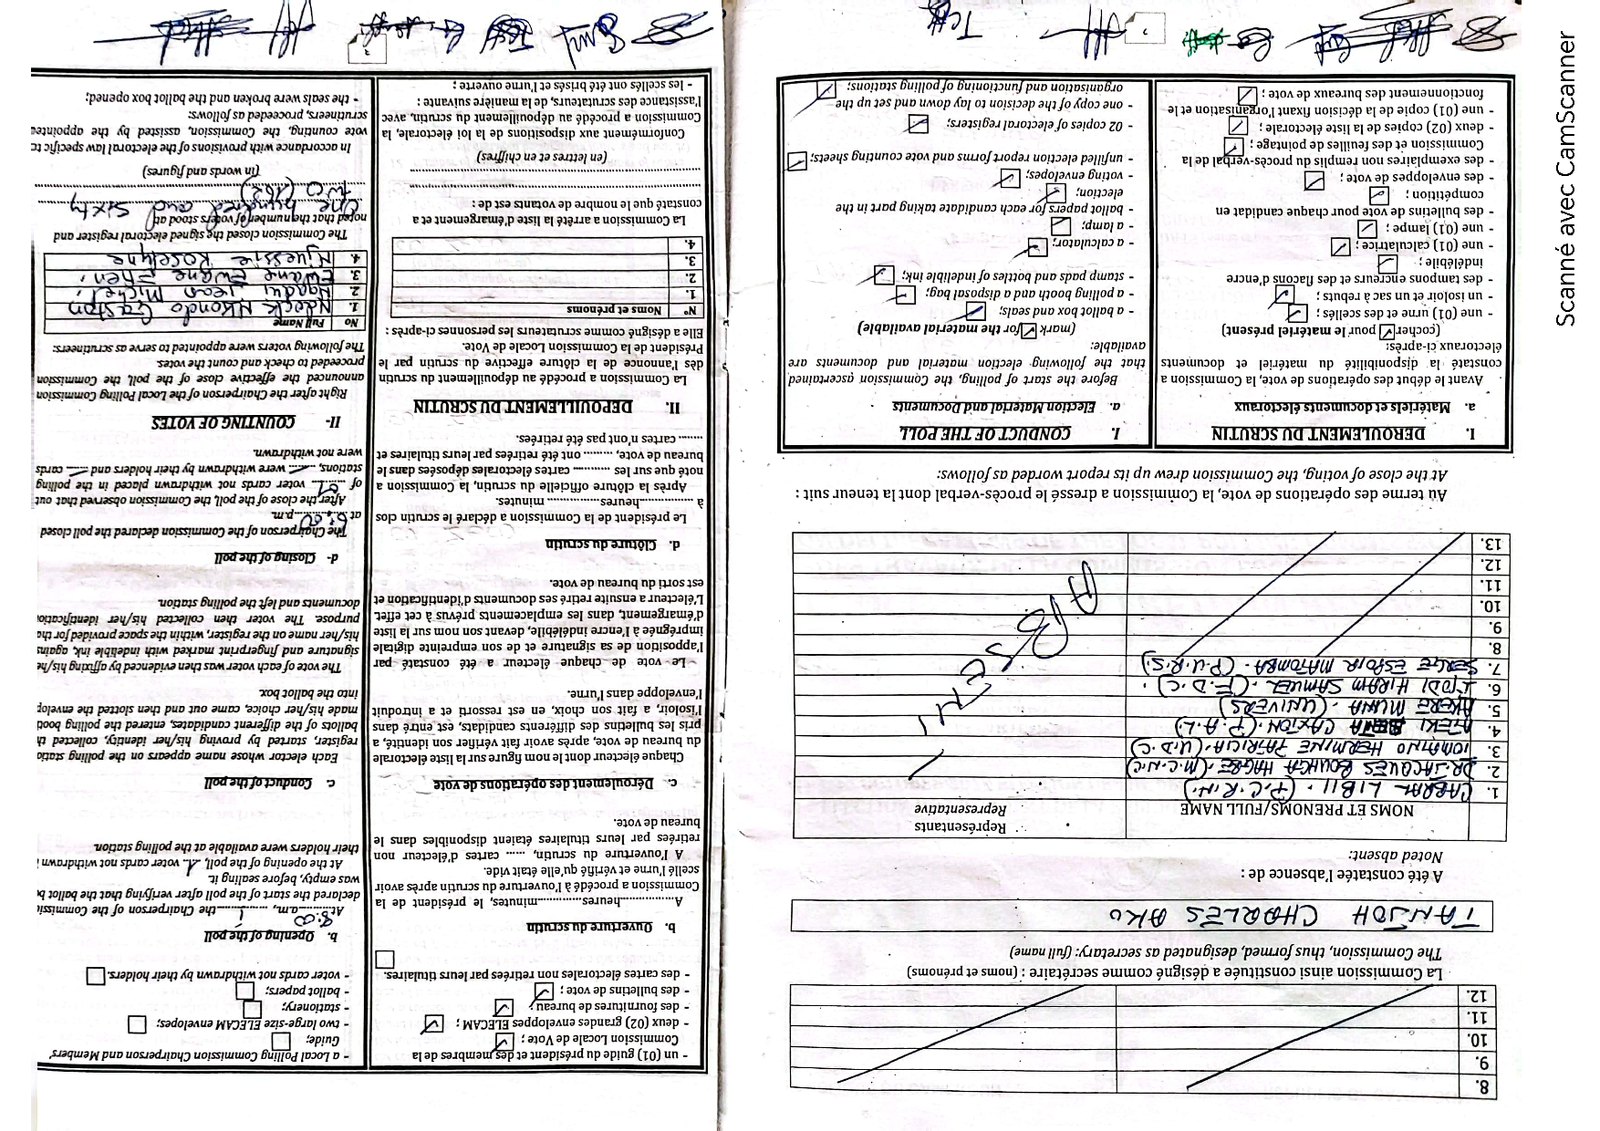 8.
9.
10.
11.
12.
La Commission ainsi constituée a désigné comme secrétaire : (noms et prénoms)
The Commission, thus formed, designated as secretary: (full name)
TANJOH CHARLES AKO
A été constatée l'absence de :
Noted absent:
NOMS ET PRENOMS/FULL NAME
Représentants
Representative
1. CABRAL LIBII. (P.C.R.N.)
2. DR. JACQUES BOUHGA HAGBE. (M.C.N.C)
3. TOMAINO HERMINE PATRICIA. (U.D.C)
4. ATEKI CAXTON (P.A.L.)
5. AKERE MUNA. (UNIVERS)
6. ILODI HIRAM SAMUEL. (F.D.C).
7. SERGE ESPOIR MATOMBA. (P.U.R.S)
8.
9.
10.
11.
12.
13.
ABSENT
Au terme des opérations de vote, la Commission a dressé le procès-verbal dont la teneur suit :
At the close of voting, the Commission drew up its report worded as follows:
I. DEROULEMENT DU SCRUTIN
a. Matériels et documents électoraux
Avant le début des opérations de vote, la Commission a
constaté la disponibilité du matériel et documents
électoraux ci-après:
(cocher pour le matériel présent)
- une (01) urne et des scellés ;
- un isoloir et un sac à rebuts ;
- des tampons encreurs et des flacons d'encre
indélébile ;
- une (01) calculatrice ;
- une (01) lampe ;
- des bulletins de vote pour chaque candidat en
compétition ;
- des enveloppes de vote ;
- des exemplaires non remplis du procès-verbal de la
Commission et des feuilles de pointage ;
- deux (02) copies de la liste électorale ;
- une (01) copie de la décision fixant l'organisation et le
fonctionnement des bureaux de vote ;
I. CONDUCT OF THE POLL
a. Election Material and Documents
Before the start of polling, the Commission ascertained
that the following election material and documents are
available:
(mark for the material available)
- a ballot box and seals;
- a polling booth and a disposal bag;
- stamp pads and bottles of indelible ink;
- a calculator;
- a lamp;
- ballot papers for each candidate taking part in the
election;
- voting envelopes;
- unfilled election report forms and vote counting sheets;
- 02 copies of electoral registers;
- one copy of the decision to lay down and set up the
organisation and functioning of polling stations;
- un (01) guide du président et des membres de la
Commission Locale de Vote ;
- deux (02) grandes enveloppes ELECAM ;
- des fournitures de bureau ;
- des bulletins de vote ;
- des cartes électorales non retirées par leurs titulaires.
b. Ouverture du scrutin
A...............heures...............minutes, le président de la
Commission a procédé à l'ouverture du scrutin après avoir
scellé l'urne et vérifié qu'elle était vide.
A l'ouverture du scrutin, ...... cartes d'électeur non
retirées par leurs titulaires étaient disponibles dans le
bureau de vote.
c. Déroulement des opérations de vote
Chaque électeur dont le nom figure sur la liste électorale
du bureau de vote, après avoir fait vérifier son identité, a
pris les bulletins des différents candidats, est entré dans
l'isoloir, a fait son choix, en est ressorti et a introduit
l'enveloppe dans l'urne.
Le vote de chaque électeur a été constaté par
l'apposition de sa signature et de son empreinte digitale
imprégnée à l'encre indélébile, devant son nom sur la liste
d'émargement, dans les emplacements prévus à cet effet
L'électeur a ensuite retiré ses documents d'identification et
est sorti du bureau de vote.
d. Clôture du scrutin
Le président de la Commission a déclaré le scrutin clos
à ............heures............ minutes.
Après la clôture officielle du scrutin, la Commission a
noté que sur les ......... cartes électorales déposées dans le
bureau de vote, ......... ont été retirées par leurs titulaires et
....... cartes n'ont pas été retirées.
II. DEPOUILLEMENT DU SCRUTIN
La Commission a procédé au dépouillement du scrutin
dès l'annonce de la clôture effective du scrutin par le
Président de la Commission Locale de Vote.
Elle a désigné comme scrutateurs les personnes ci-après :
N° Noms et prénoms
1.
2.
3.
4.
La Commission a arrêté la liste d'émargement et a
constaté que le nombre de votants est de :
(en lettres et en chiffres)
Conformément aux dispositions de la loi électorale, la
Commission a procédé au dépouillement du scrutin, avec
l'assistance des scrutateurs, de la manière suivante :
- les scellés ont été brisés et l'urne ouverte ;
- a Local Polling Commission Chairperson and Members'
Guide;
- two large-size ELECAM envelopes;
- stationery;
- ballot papers;
- voter cards not withdrawn by their holders.
b. Opening of the poll
At 8:00 a.m., the Chairperson of the Commission
declared the start of the poll after verifying that the ballot b
was empty, before sealing it.
At the opening of the poll, voter cards not withdrawn
their holders were available at the polling station.
c. Conduct of the poll
Each elector whose name appears on the polling static
register, started by proving his/her identity, collected th
ballots of the different candidates, entered the polling boot
made his/her choice, came out and then slotted the envelop
into the ballot box.
The vote of each voter was then evidenced by affixing his/he
signature and fingerprint marked with indelible ink, agains
his/her name on the register, within the space provided for tha
purpose. The voter then collected his/her identification
documents and left the polling station.
d- Closing of the poll
The Chairperson of the Commission declared the poll closed
at 6:00 p.m.
After the close of the poll, the Commission observed that out
of voter cards not withdrawn placed in the polling
stations, were withdrawn by their holders and cards
were not withdrawn.
II- COUNTING OF VOTES
Right after the Chairperson of the Local Polling Commission
announced the effective close of the poll, the Commission
proceeded to check and count the votes.
The following voters were appointed to serve as scrutineers:
No Full Name
1. Ndeck Nkondo Gaston
2. Ngadui Jean Michel
3. Ewane Ewane Ehen
4. Njuessie Roselyne
The Commission closed the signed electoral register and
noted that the number of voters stood at
One hundred and sixty
two (162)
(in words and figures)
In accordance with provisions of the electoral law specific to
vote counting, the Commission, assisted by the appointed
scrutineers, proceeded as follows:
- the seals were broken and the ballot box opened;
Scanné avec CamScanner